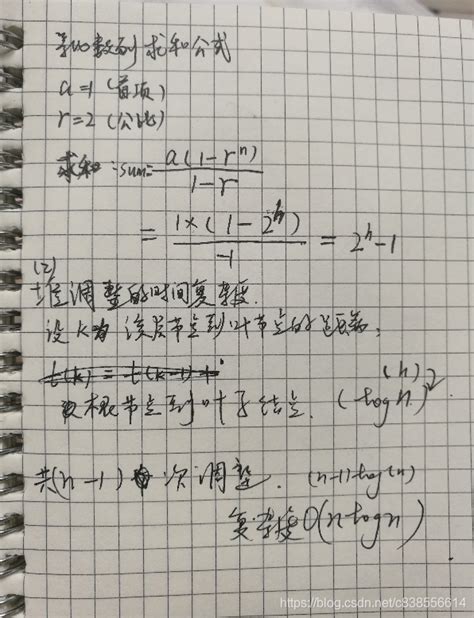 等比数列求和公式
a=1(首项)
r=2(公比)
求和:sum=a(1-rⁿ)/1-r
=1×(1-2ʰ)/-1=2ʰ-1
(2)
堆调整的时间复杂度.
设k为该节点到叶节点的距离;
t(k)=t(k-1)+
从根节点到叶子结点.(logn)
(h)
共(n-1)次调整.(n-1)log(n)
复杂度O(nlogn)
https://blog.csdn.net/c838556614